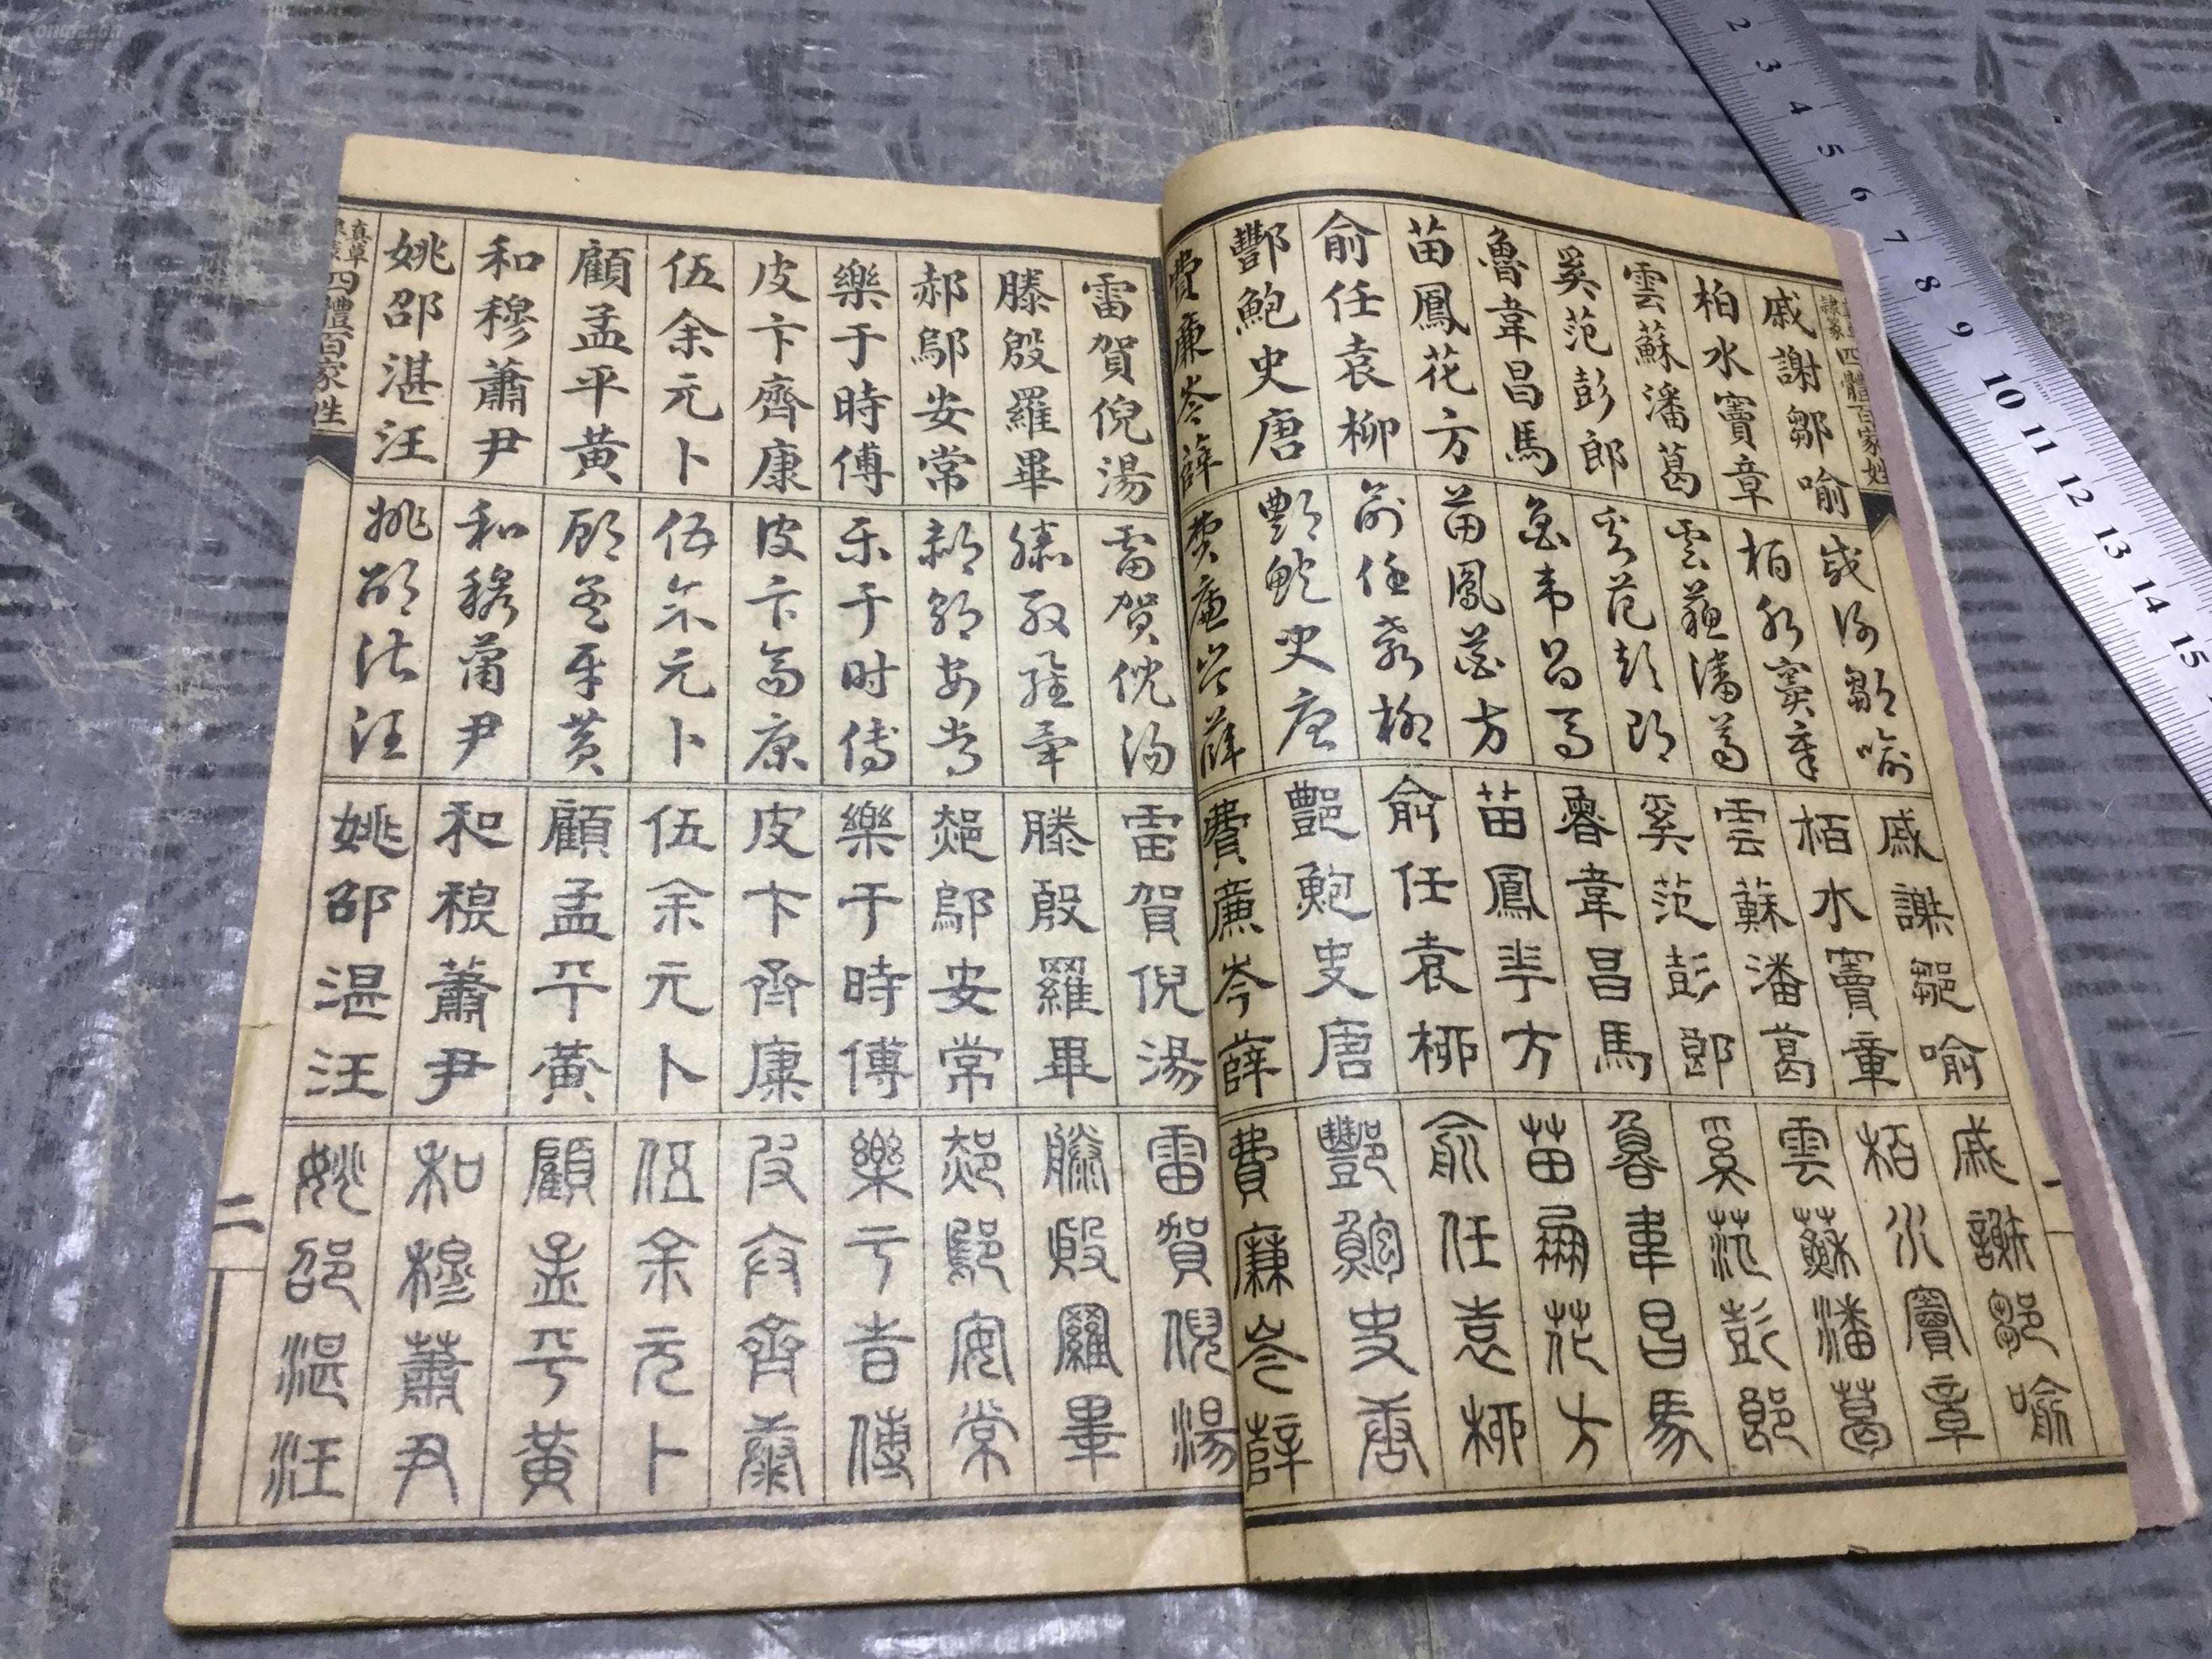 四體百家姓
戚謝鄒喻
柏水竇章
雲蘇潘葛
奚范彭郎
魯韋昌馬
苗鳳花方
俞任袁柳
酆鮑史唐
費廉岑薛
戚謝鄒喻
柏水竇章
雲蘇潘葛
奚范彭郎
魯韋昌馬
苗鳳花方
俞任袁柳
酆鮑史唐
費廉岑薛
戚謝鄒喻
柏水竇章
雲蘇潘葛
奚范彭郎
魯韋昌馬
苗鳳花方
俞任袁柳
酆鮑史唐
費廉岑薛
戚謝鄒喻
柏水竇章
雲蘇潘葛
奚范彭郎
魯韋昌馬
苗鳳花方
俞任袁柳
酆鮑史唐
費廉岑薛
雷賀倪湯
滕殷羅畢
郝鄔安常
樂于時傅
皮卞齊康
伍余元卜
顧孟平黃
和穆蕭尹
姚邵湛汪
雷賀倪湯
滕殷羅畢
郝鄔安常
樂于時傅
皮卞齊康
伍余元卜
顧孟平黃
和穆蕭尹
姚邵湛汪
雷賀倪湯
滕殷羅畢
郝鄔安常
樂于時傅
皮卞齊康
伍余元卜
顧孟平黃
和穆蕭尹
姚邵湛汪
雷賀倪湯
滕殷羅畢
郝鄔安常
樂于時傅
皮卞齊康
伍余元卜
顧孟平黃
和穆蕭尹
姚邵湛汪
真草隸篆四體百家姓
二
2 3 4 5 6 7 8 9 10 11 12 13 14 15